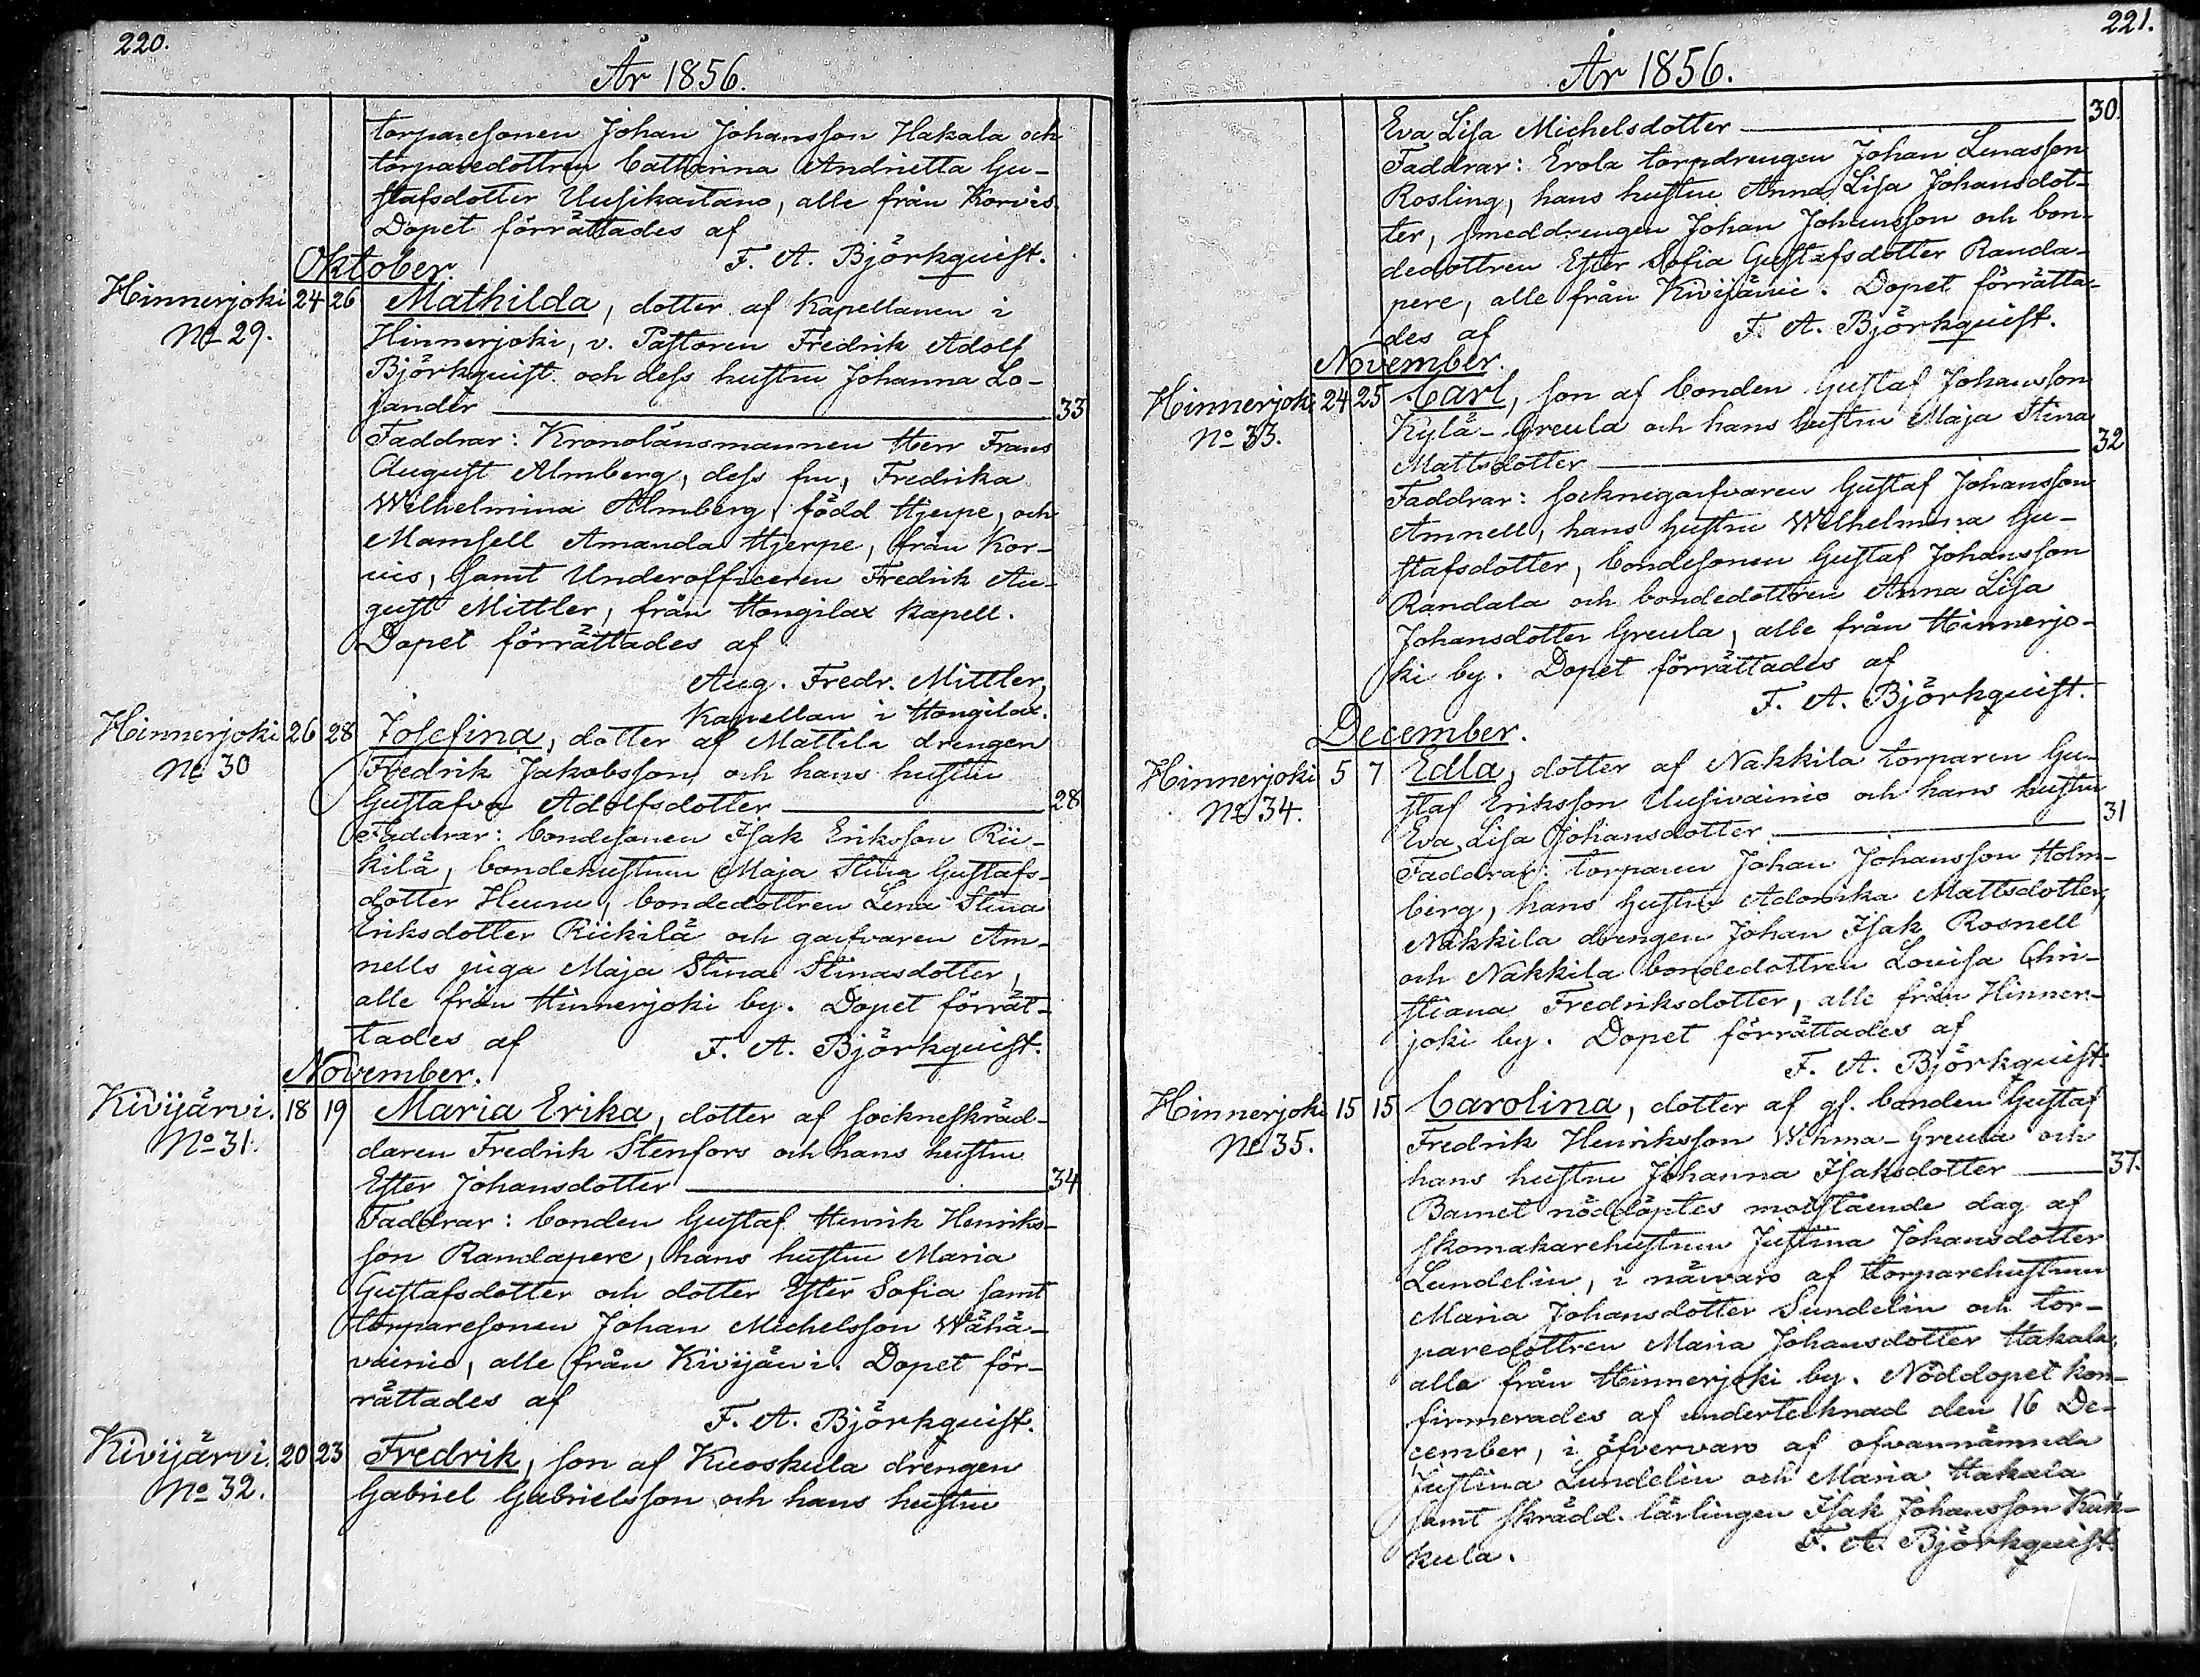 220.
År 1856.
torparesonen Johan Johansson Hakala och
torparedottren Catharina Andrietta Gu-
stafsdotter Uusikartano, alle från Korvis.
Dopet förrättades af
F. A. Björkquist.
Oktober.
Hinnerjoki 24 26 Mathilda, dotter af Kapellanen i
No 29. Hinnerjoki, v. Pastoren Fredrik Adolf
Björkquist och dess hustru Johanna Lo-
jander 33
Faddrar: Kronolänsmannen Herr Frans
August Almberg, dess fru, Fredrika
Wilhelmina Almberg, född Hjerpe, och
Mamsell Amanda Hjerpe, från Kor-
vis, samt Underofficeren Fredrik Au-
gust Mittler, från Hongilax Kapell.
Dopet förrättades af
Aug. Fredr. Mittler,
Kapellan i Hongilax.
Hinnerjoki 26 28 Josefina, dotter af Mattila drengen
No 30 Fredrik Jakobsson och hans hustru
Gustafva Adolfsdotter 28
Faddrar: bondesonen Isak Eriksson Rii-
kilä, bondehustrun Maja Stina Gustafs-
dotter Heunu, bondedottren Lena Stina
Eriksdotter Riikilä och garfvaren Am-
nells piga Maja Stina Stinasdotter,
alle från Hinnerjoki by. Dopet förrät-
tades af
F. A. Björkquist.
November.
Kivijärvi. 18 19 Maria Erika, dotter af sockneskräd-
No 31. daren Fredrik Stenfors och hans hustru
Ester Johansdotter 34
Faddrar: bonden Gustaf Henrik Henriks-
son Randapere, hans hustru Maria
Gustafsdotter och dotter Ester Sofia samt
torparesonen Johan Michelsson Wähä-
vainio, alle från Kivijärvi. Dopet för-
rättades af
F. A. Björkquist.
Kivijärvi. 20 23 Fredrik, son af Kuoskula drengen
No 32. Gabriel Gabrielsson och hans hustru
221.
År 1856.
Eva Lisa Michelsdotter 30.
Faddrar: Erola torpdrengen Johan Lenasson
Rosling, hans hustru Anna Lisa Johansdot-
ter, smeddrengen Johan Johansson och bon-
dedottren Ester Sofia Gustafsdotter Randa-
pere, alle från Kivijärvi. Dopet förrätta-
des af
F. A. Björkquist.
November.
Hinnerjoki 24 25 Carl, son af bonden Gustaf Johansson
No 33. Kylä-Greula och hans hustru Maja Stina
Mattsdotter 32
Faddrar: socknegarfvaren Gustaf Johansson
Amnell, hans hustru Wilhelmina Gu-
stafsdotter, bondesonen Gustaf Johansson
Randala och bondedottren Anna Lisa
Johansdotter Greula, alle från Hinnerjo-
ki by. Dopet förrättades af
F. A. Björkquist.
December.
Hinnerjoki 5 7 Edla, dotter af Nakkila torparen Gu-
No 34. staf Eriksson Uusivainio och hans hustru
Eva Lisa Johansdotter 31
Faddrar: torparen Johan Johansson Holm-
berg, hans hustru Adonika Mattsdotter,
Nakkila drengen Johan Isak Rosnell
och Nakkila bondedottren Lovisa Chri-
stiana Fredriksdotter, alle från Hinner-
joki by. Dopet förrättades af
F. A. Björkquist.
Hinnerjoki 15 15 Carolina, dotter af gf. bonden Gustaf
No 35. Fredrik Henriksson Wihma-Greula och
hans hustru Johanna Isaksdotter 37.
Barnet nöddöptes motstående dag af
skomakarehustrun Justina Johansdotter
Lundelin, i närvaro af torparehustrun
Maria Johansdotter Sundelin och tor-
paredottren Maria Johansdotter Hakala,
alla från Hinnerjoki by. Nöddopet kon-
firmerades af undertecknad den 16 De-
cember, i öfvervaro af ofvannämnda
Justina Lundelin och Maria Hakala
samt skrädd. lärlingen Isak Johansson Kuk-
kula.
F. A. Björkquist.